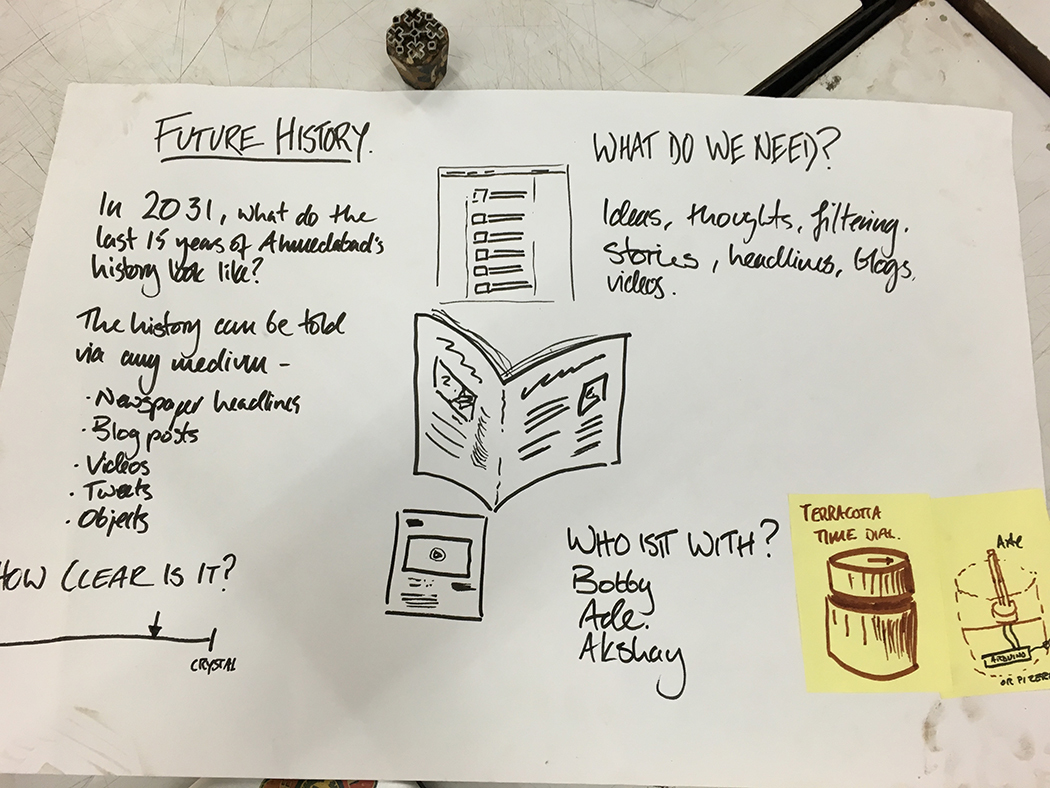 FUTURE HISTORY.
In 2031, what do the
last 15 years of Ahmedabad's
history look like?
The history can be told
via any medium -
· Newspaper headlines
· Blog posts
· Videos
· Tweets
· Objects
HOW CLEAR IS IT?
CRYSTAL
WHAT DO WE NEED?
Ideas, thoughts, filtering.
stories, headlines, blogs,
videos.
WHO IS IT WITH?
Bobby
Ade.
Akshay
TERRACOTTA
TIME DIAL.
ARDUINO
OR PIZERO